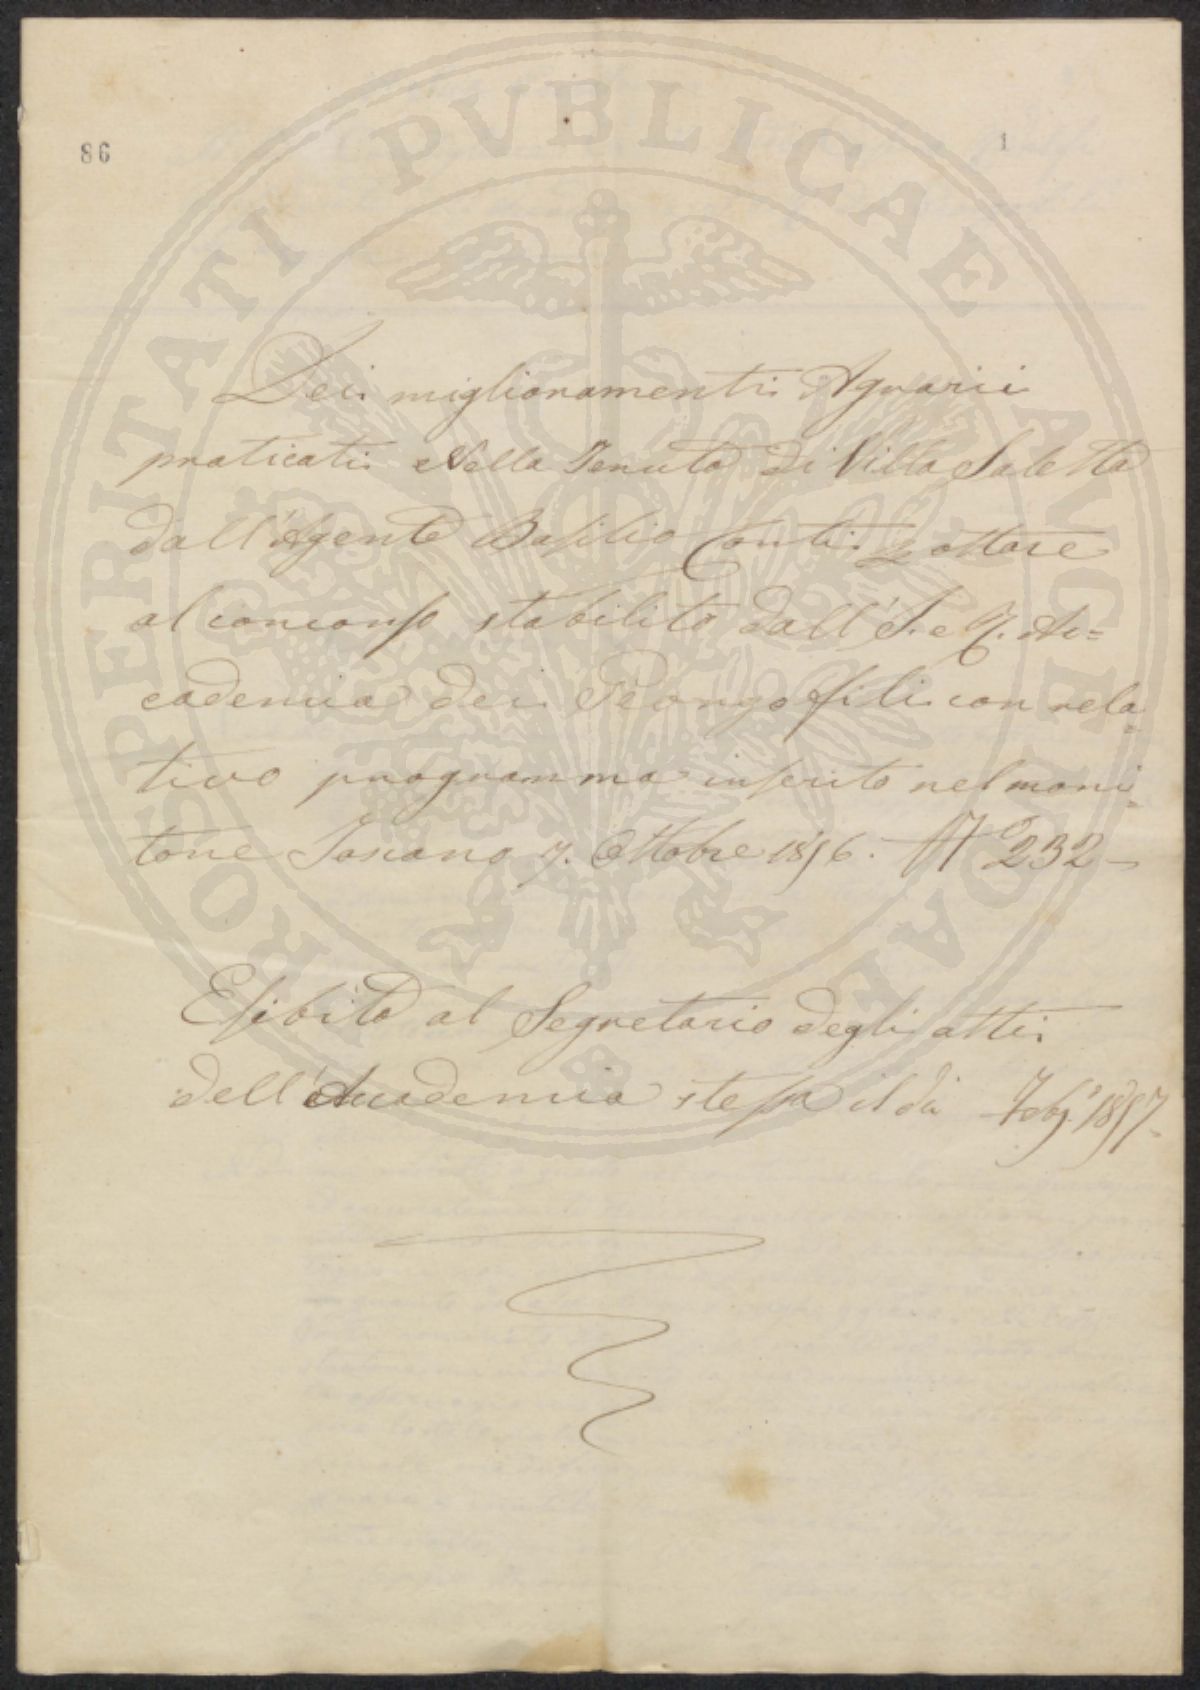 86
1
PROSPERITATI PVBLICAE AVGENDAE
Dei miglioramenti Agrarii
praticati Nella Tenuta di Villa Saletta
dall'Agente Basilio Conti
al concorso stabilito dall'I. e R. Ac=
cademia dei Georgofili con rela-
tivo programma inserito nel moni-
tore Toscano 7. Ottobre 1856. N° 232-
Esibito al Segretario degli atti
dell'Accademia stessa il dì Feb.° 1857-